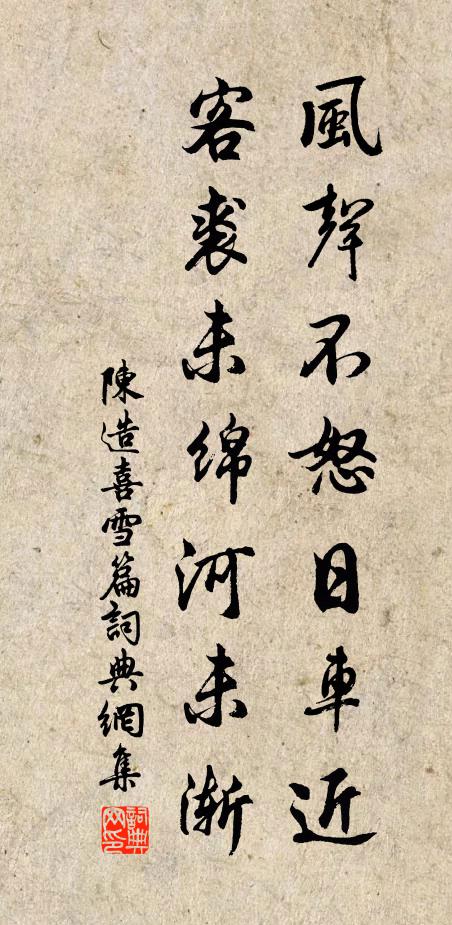 風聲不怒日車近
客裘未綿河未澌
陳造喜雪篇詞典網集
詞典網印